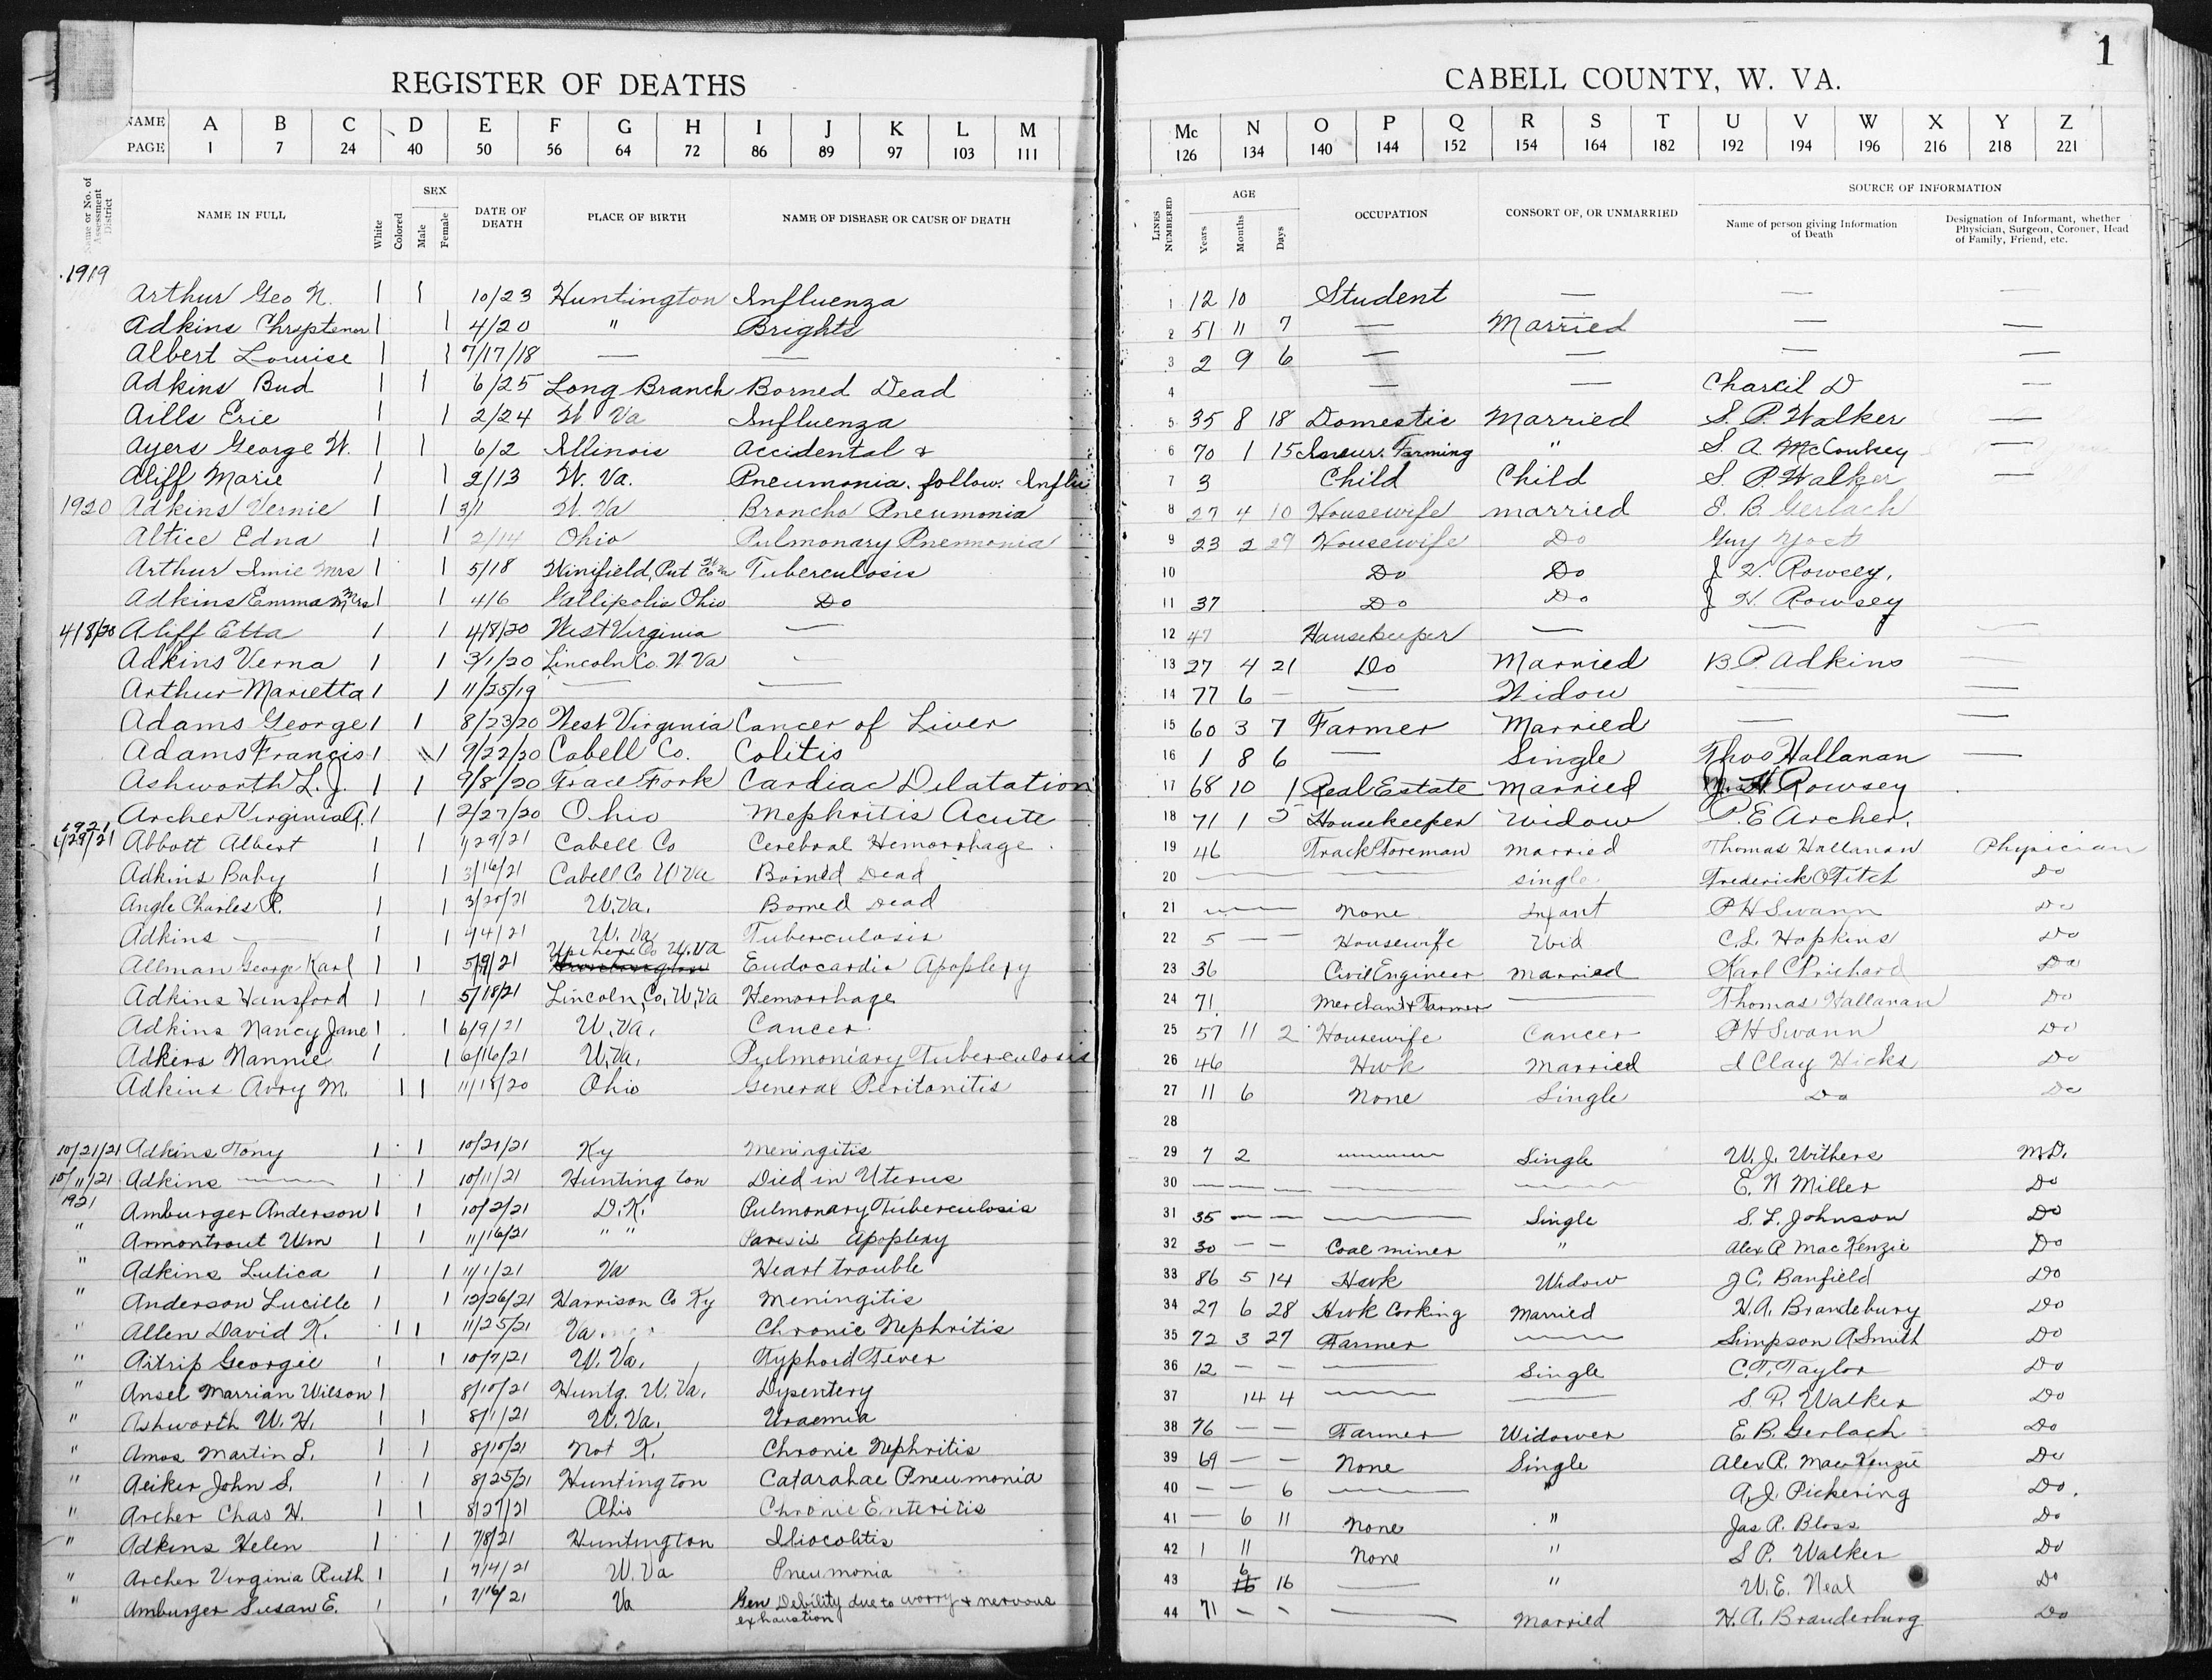 REGISTER OF DEATHS
NAME A B C D E F G H I J K L M
PAGE 1 7 24 40 50 56 64 72 86 89 97 103 111
Name or No. of Assessment District NAME IN FULL White Colored SEX Male Female DATE OF DEATH PLACE OF BIRTH NAME OF DISEASE OR CAUSE OF DEATH
1919
Arthur Geo N. 1 1 10/23 Huntington Influenza
Adkins 1 1 4/20 " Brights
Albert Louise 1 1 7/17/18 — —
Adkins Bud 1 1 6/25 Long Branch Borned Dead
Aills Erie 1 1 2/24 W Va Influenza
Ayers George W. 1 1 6/2 Illinois Accidental +
Aliff Marie 1 1 2/13 W. Va. Pneumonia. follow. Influ
1920 Adkins Vernie 1 1 3/1 W. Va Broncho Pneumonia
Altice Edna 1 1 2/14 Ohio Pulmonary Pneumonia
Arthur Imie Mrs 1 1 5/18 Winifield, Put Co W Va Tuberculosis
Adkins Emma M Mrs 1 1 4/6 Gallipolis Ohio Do
4/8/20 Aliff Etta 1 1 4/8/20 West Virginia —
Adkins Verna 1 1 3/1/20 Lincoln Co. W Va —
Arthur Marietta 1 1 11/25/19 — —
Adams George 1 1 8/23/20 West Virginia Cancer of Liver
Adams Francis 1 1 9/22/20 Cabell Co. Colitis
Ashworth L. J. 1 1 9/8/20 Trace Fork Cardiac Dilatation
Archer Virginia A. 1 1 2/27/20 Ohio Mephritis Acute
1921
1/29/21 Abbott Albert 1 1 1/29/21 Cabell Co Cerebral Hemorrhage
Adkins Baby 1 1 3/16/21 Cabell Co W Va Borned Dead
Angle Charles R. 1 1 3/20/21 W. Va. Borned Dead
Adkins — 1 1 4/4/21 W. Va Tuberculosis
Allman George Karl 1 1 5/9/21 Co W. Va Endocardia Apoplexy
Adkins Hansford 1 1 5/18/21 Lincoln, Co, W, Va Hemorrhage
Adkins Nancy Jane 1 1 6/9/21 W. Va. Cancer
Adkins Nannie 1 1 6/16/21 W. Va. Pulmoniary Tuberculosis
Adkins Avry M. 1 1 11/18/20 Ohio General Peritonitis
10/21/21 Adkins Tony 1 1 10/21/21 Ky Meningitis
10/11/21 Adkins — 1 1 10/11/21 Huntington Died in Uterus
1921 Amburger Anderson 1 1 10/2/21 D. K. Pulmonary Tuberculosis
" Armontrout Wm 1 1 11/16/21 " " Paresis Apoplexy
" Adkins Lutica 1 1 11/1/21 Va Heart trouble
" Anderson Lucille 1 1 12/26/21 Harrison Co Ky Meningitis
" Allen David K. 1 1 11/25/21 Va Chronic Nephritis
" Aitrip Georgie 1 1 10/7/21 W. Va. Typhoid Fever
" Ansel Marrian Wilson 1 8/10/21 Huntg. W. Va. Dysentery
" Ashworth W. H. 1 1 8/1/21 W. Va. Uraemia
" Amos Martin L. 1 1 8/10/21 Not K. Chronic Nephritis
" Aeiker John S. 1 1 8/25/21 Huntington Catarahae Pneumonia
" Archer Chas H. 1 1 8/27/21 Ohio Chronic Enteritis
" Adkins Helen 1 1 7/8/21 Huntington Iliocolitis
" Archer Virginia Ruth 1 1 7/14/21 W. Va Pneumonia
" Amburger Susan E. 1 1 7/16/21 Va Gen Debility due to worry + nervous
exhaustion
1
CABELL COUNTY, W. VA.
Mc N O P Q R S T U V W X Y Z
126 134 140 144 152 154 164 182 192 194 196 216 218 221
LINES NUMBERED AGE Years Months Days OCCUPATION CONSORT OF, OR UNMARRIED SOURCE OF INFORMATION
Name of person giving Information of Death Designation of Informant, whether Physician, Surgeon, Coroner, Head of Family, Friend, etc.
1 12 10 Student — — —
2 51 11 7 — Married — —
3 2 9 6 — — — —
4 — — Charcil D —
5 35 8 18 Domestic Married S. P. Walker —
6 70 1 15 Insur. Farming " S. A. McConkey —
7 3 Child Child S. P. Walker —
8 27 4 10 Housewife married E. B. Gerlach
9 23 2 29 Housewife Do Guy Yost
10 Do Do J H. Rowsey,
11 37 Do Do J H. Rowsey
12 47 Housekeeper — — —
13 27 4 21 Do Married B. P. Adkins —
14 77 6 — — Widow — —
15 60 3 7 Farmer Married — —
16 1 8 6 — Single Thos Hallanan —
17 68 10 1 Real Estate Married J. H Rowsey
18 71 1 5 Housekeeper Widow P. E Archer.
19 46 Track Foreman Married Thomas Hallanan Physician
20 — — single Frederick O Fitch Do
21 — None Infant P H Swann Do
22 5 — — Housewife Wid C. L. Hopkins Do
23 36 Civil Engineer Married Karl C Prichard Do
24 71 Merchant + Farmer — Thomas Hallanan Do
25 57 11 2 Housewife Cancer P H Swann Do
26 46 Hwk Married I Clay Hicks Do
27 11 6 None Single Do Do
28
29 7 2 — Single W. J. Withers M.D.
30 — — — — — E. N Miller Do
31 35 — — — Single S. L. Johnson Do
32 30 — — Coal miner " Alex R MacKenzie Do
33 86 5 14 Hwk Widow J C. Banfield Do
34 27 6 28 Hwk Cooking Married H. A. Brandebury Do
35 72 3 27 Farmer — Simpson A Smith Do
36 12 — — — Single C. T. Taylor Do
37 14 4 — — S. P. Walker Do
38 76 — — Farmer Widower E. B. Gerlach Do
39 69 — — None Single Alex R. MacKenzie Do
40 — — 6 — " A. J. Pickering Do.
41 — 6 11 None " Jas R. Bloss Do
42 1 11 None " S P. Walker Do
43 6 16 — " W. E. Neal Do
44 71 — — — Married H. A. Branderburg Do